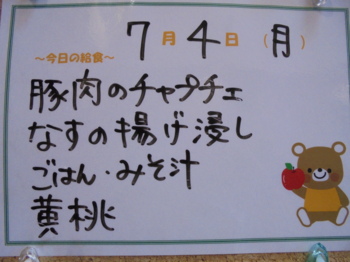 7月4日(月)
～今日の給食～
豚肉のチャプチェ
なすの揚げ浸し
ごはん・みそ汁
黄桃